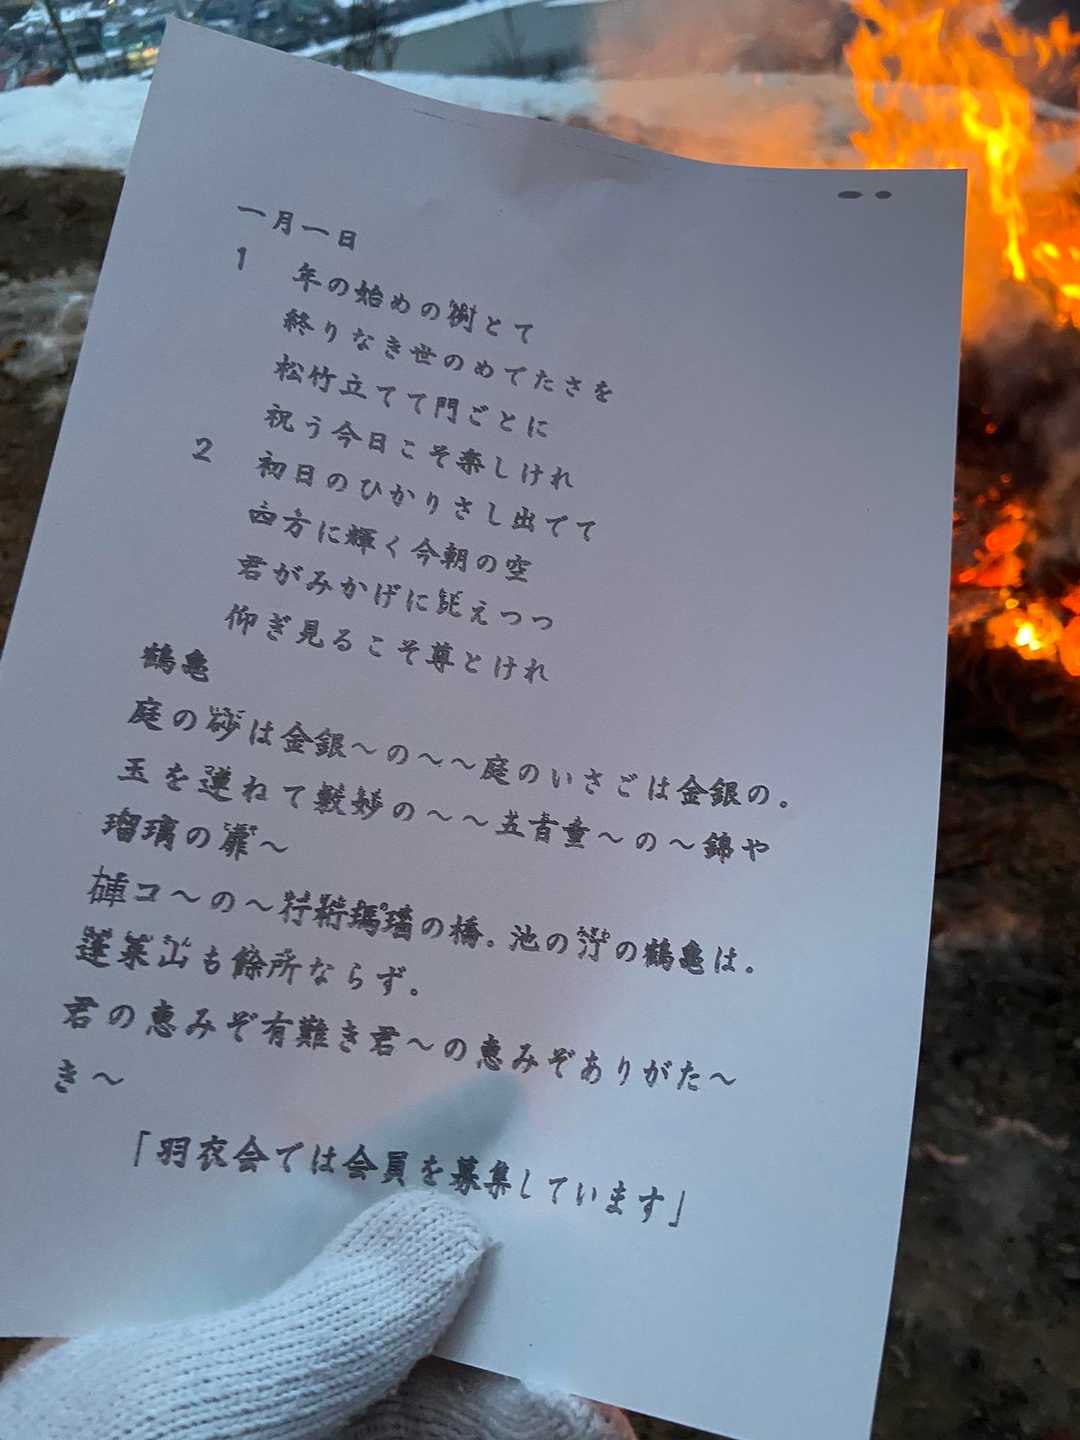 一月一日
1 年の始めの例とて
終りなき世のめでたさを
松竹立てて門ごとに
祝う今日こそ楽しけれ
2 初日のひかりさし出でて
四方に輝く今朝の空
君がみかげに比えつつ
仰ぎ見るこそ尊とけれ
鶴亀
庭の砂は金銀〜の〜〜庭のいさごは金銀の。
玉を連ねて敷妙の〜〜五百重〜の〜錦や
瑠璃の扉〜
〜の〜行桁瑪瑙の橋。池の汀の鶴亀は。
蓬莱山も餘所ならず。
君の恵みぞ有難き君〜の恵みぞありがた〜
き〜
「羽衣会では会員を募集しています」